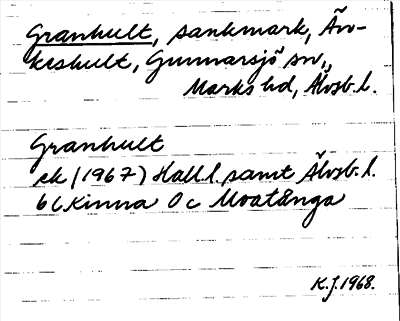 Granhult, sankmark, Än-
keshult, Gunnarsjö sn.,
Marks hd, Älvsb. l.
Granhult
ek (1967) Hall. l. samt Älvsb. l.
6c Kinna 0c Moatånga
K.J. 1968.